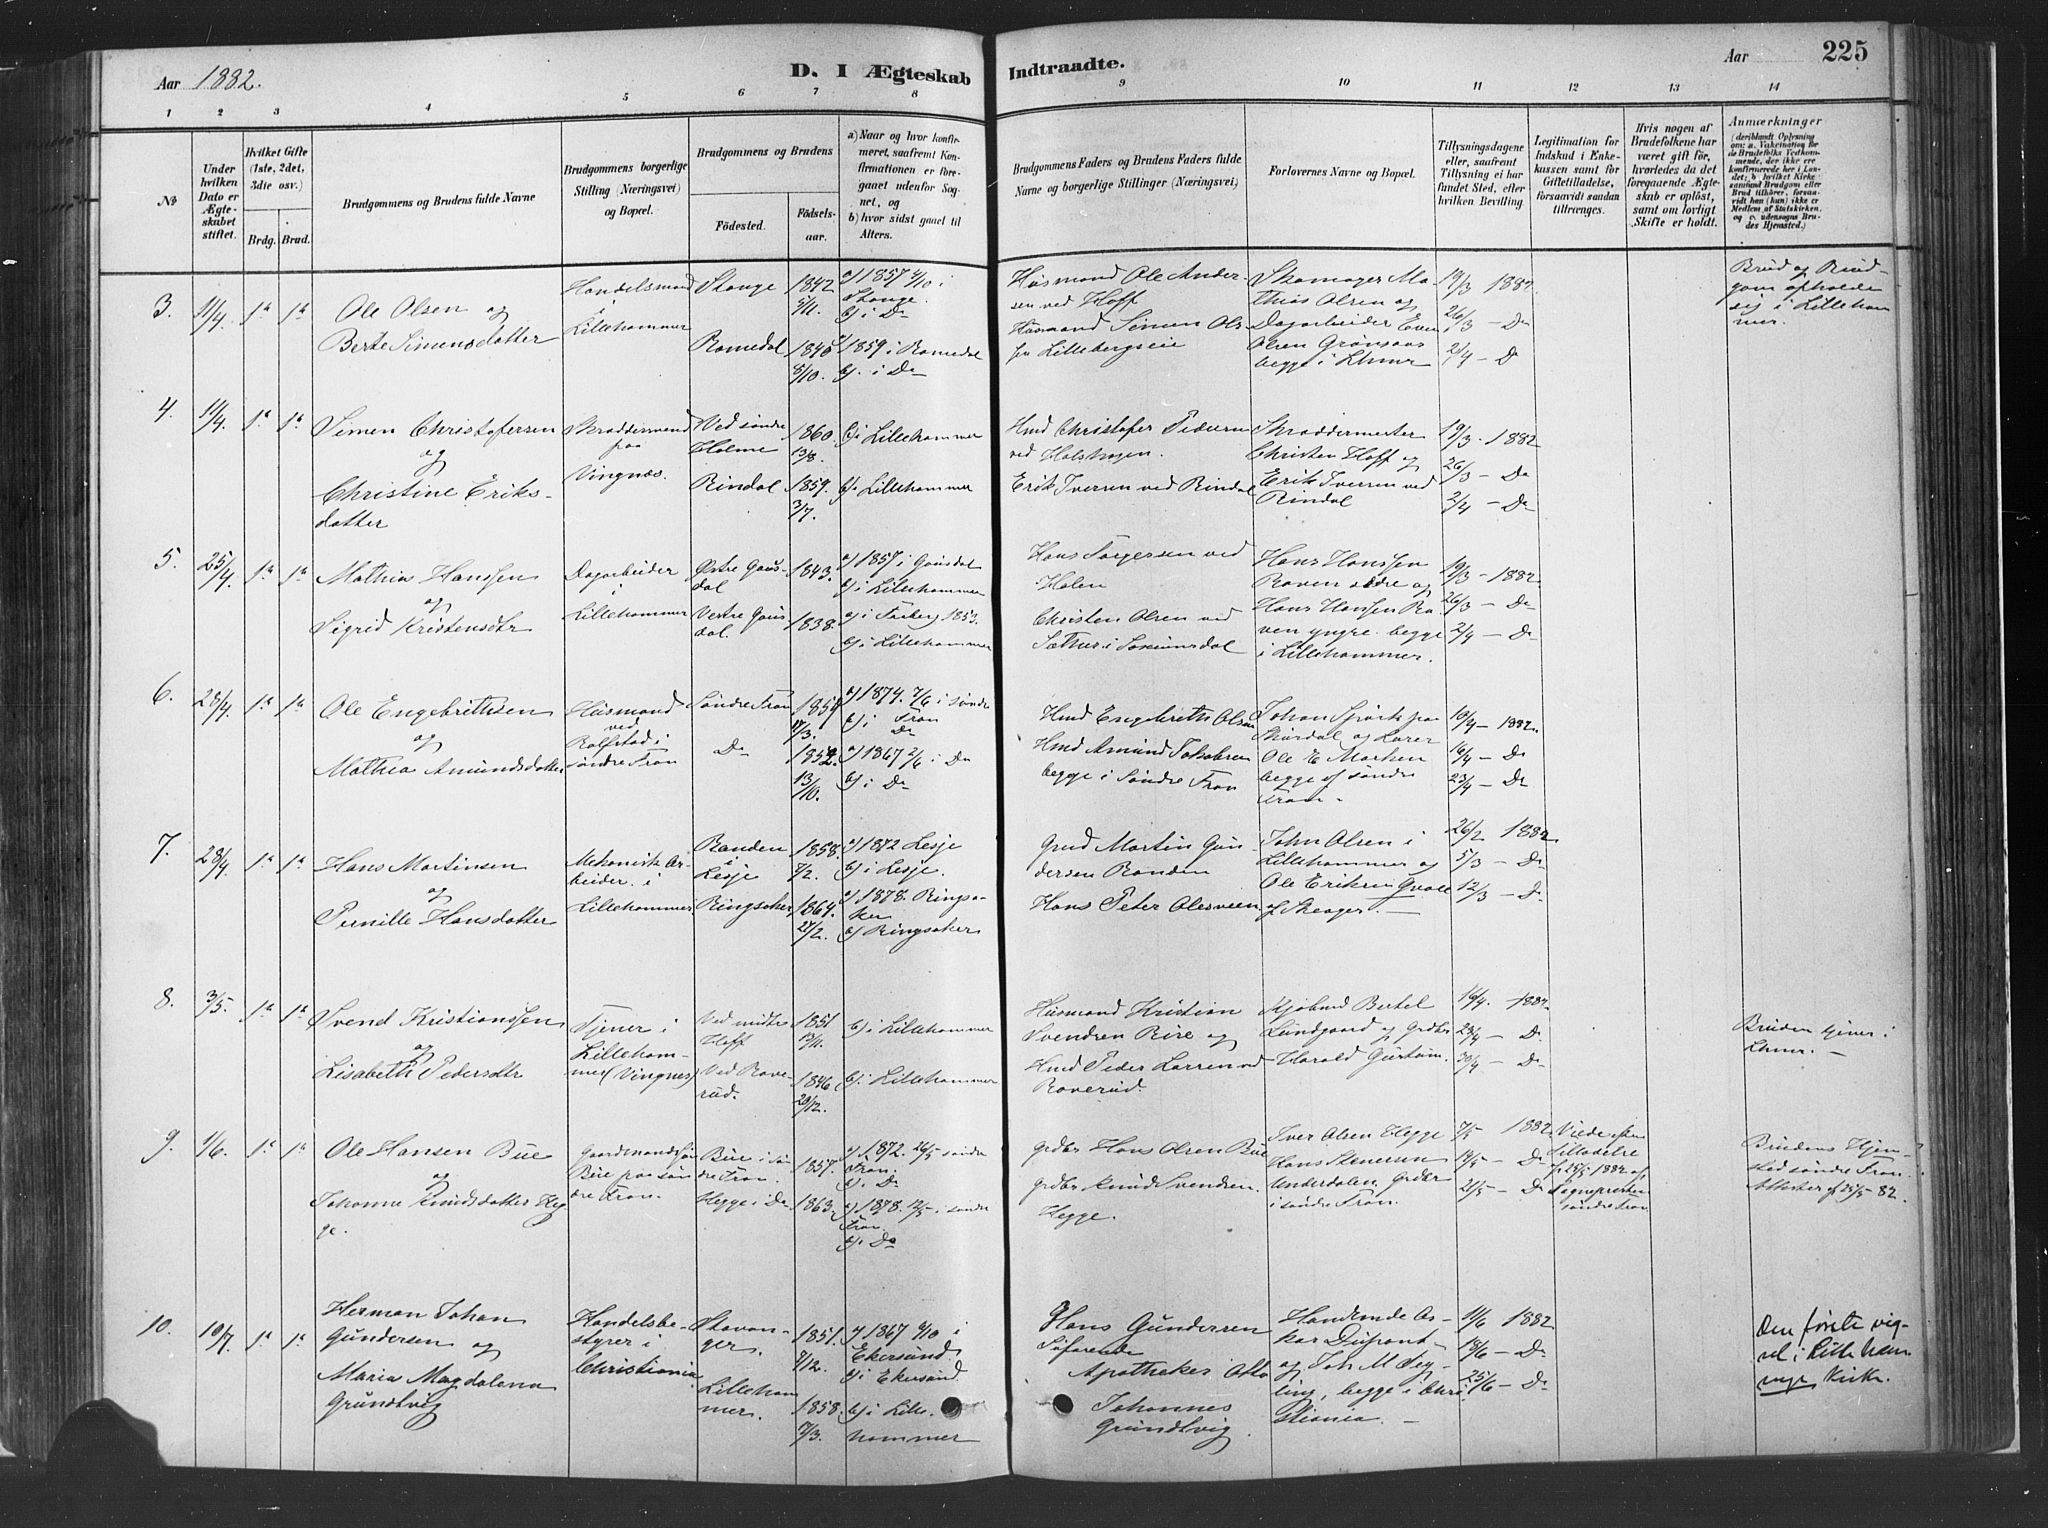 Aar 1882.
D. I Ægteskab
Indtraadte.
Aar
225
1 2 3 4 5 6 7 8 9 10 11 12 13 14
№
Under hvilken Dato er Ægteskabet stiftet.
Hvilket Gifte (1ste, 2det, 3die osv.)
Brdg. Brud.
Brudgommens og Brudens fulde Navne
Brudgommens borgerlige Stilling (Næringsvei) og Bopæl.
Brudgommens og Brudens
Fødested.
Fødsels-aar.
a) Naar og hvor konfirmeret, saafremt Konfirmationen er foregaaet udenfor Sognet, og
b) hvor sidst gaaet til Alters.
Brudgommens Faders og Brudens Faders fulde Navne og borgerlige Stillinger (Næringsvei)
Forlovernes Navne og Bopæl.
Tillysningsdagene eller, saafremt Tillysning ei har fundet Sted, efter hvilken Bevilling.
Legitimation for Indskud i Enkekassen samt for Giftetilladelse, forsaavidt saadan tiltrænges.
Hvis nogen af Brudefolkene har været gift før, hvorledes da det foregaaende Ægteskab er opløst, samt om lovligt Skifte er holdt.
Anmærkninger
3. 11/4 1ste 1ste
Ole Olsen og
Berte Simensdatter
Handelsmand
i
Lillehammer
Stange
Romedal
1842
5/11.
8/10.
a) 1857 4/10 i
Stange.
b) i Do
a) 1859 i Romedal
b) i Do
Husmand Ole Ander-
sen ved Hoff
Husmand Simen Ols.
fra Lillebergseie
Skomager Ma-
thias Olsen og
Dagarbeider Even
Olsen Grønsaas
begge i Lhmr
19/3 1882
26/3 — Do
2/4 — Do
Brud og Brud-
gom opholde
sig i Lilleham
mer.
4. 11/4
Simen Christofersen
og
Christine Eriks-
datter
Skreddersvend
paa
Vingnæs.
Ved søndre
Holme
Rindal
1860
13/8.
1859.
3/7.
b) i Lillehammer
b) i Lillehammer
Hmd Christofer Pedersen
ved Holshagen.
Erik Iversen ved Rindal
Skræddermester
Christen Hoff og
Erik Iversen ved
Rindal
19/3 - 1882
26/3 — Do
2/4 — Do
5. 25/4
Mathias Hanssen
og
Sigrid Kristensdtr
Dagarbeider
i
Lillehammer
Østre Gaus-
dal
Vestre Gaus-
dal.
1843.
1838.
a) 1857 i Gausdal
b) i Lillehammer
a) i Faaberg 1853.
b) i Lillehammer
Hans Torgersen ved
Holen
Christen Olsen ved
Hans Hanssen
Raven ældre og
Hans Hanssen Ra-
ven yngre. begge
i Lillehammer.
19/3 - 1882
26/3 — Do
2/4 — Do
6. 28/4
Ole Engebrethsen
og
Mathia Amundsdatter
Husmand
ved
Rolfstad i
søndre Fron
Søndre Fron
Do
17/3.
1852.
13/10.
a) 1874. 7/6 i søndre
Fron
b) i Do
a) 1867 2/6 i Do
b) i Do
Hmd Engebreth Olsen
Hmd Amund Jakobsen
begge i Søndre Fron
Ole E Marken
begge af søndre
Fron.
10/4 — 1882.
16/4 — Do
23/4 — Do
7. 28/4
Hans Martinsen
og
Pernille Hansdatter
Mekanisk Ar-
beider i
Lillehammer.
Randen
i
Lesje
Ringsaker
1858.
7/2.
1864.
27/2.
a) 1872 Lesje
b) i Lesje.
a) 1878. Ringsa-
ker
b) Ringsaker
Grmd Martin Gun-
dersen Randen
Hans Peter Olesveen
John Olsen i
Lillehammer og
Ole Eriksen
26/2 1882
5/3 — Do
12/3 — Do
8. 3/5.
Svend Kristianssen
og
Lisabeth Pedersdtr
Tjener i
Lilleham-
mer (Vingnes)
Ved midtre
Hoff
Ved Rove-
rud.
1851
13/11.
1846
20/12.
b) i Lillehammer
b) i Lillehammer
Husmand Kristian
Svendsen Rise og
Hmd Peder Larsen ved
Roverud.
Kjøbmd Bertel
Lundgaard og Grdbr
Harald Gustum.
16/4. 1882
23/4 — Do.
30/4 — Do
Bruden tjener i
Lhmr. —
9. 1/6.
Ole Hansen Bue
og
Johanne Knudsdatter Heg
ge.
Gaardmandssøn
Bue paa søn
dre Fron.
Bue i søn
dre Fron.
Hegge i Do
1857.
1863.
a) 1872. 26/5 søndre
Fron.
b). Do
a) 1878. 12/5 i søndre
Fron.
b) i Do
Grdbr Hans Olsen Bue
Grdbr Knud Svendsen
Hegge.
Iver Olsen Hegge
Hans Stenersen
Underdalen Grdbr
i søndre Fron.
7/5 1882.
— Do
21/5 — Do
Vielses
Tilladelse
af 25/5 1882 af
Sognepresten
søndre Fron
Brudens Hjem-
sted søndre Fron
Attester af 25/5 82.
10. 10/7
Herman Johan
Gundersen og
Maria Magdalena
Grundtvig
Handelsbe-
styrer i
Christiania
Stavan-
ger.
Lilleham
mer.
1851.
7/12.
1858.
7/3.
a) 1867 6/10 i
Ekersund
b) i Ekersund.
b) i Lille-
hammer
Hans Gundersen
Søfarende
Apotheker Otto
Johannes
Grundtvig.
Handlende Os-
kar Dupont
og Joh M Seg
ling, begge i Chri
stiania. —
11/6 1882
18/6 — Do
25/6 — Do
Den første vig-
sel i Lilleham
mer Kirke.